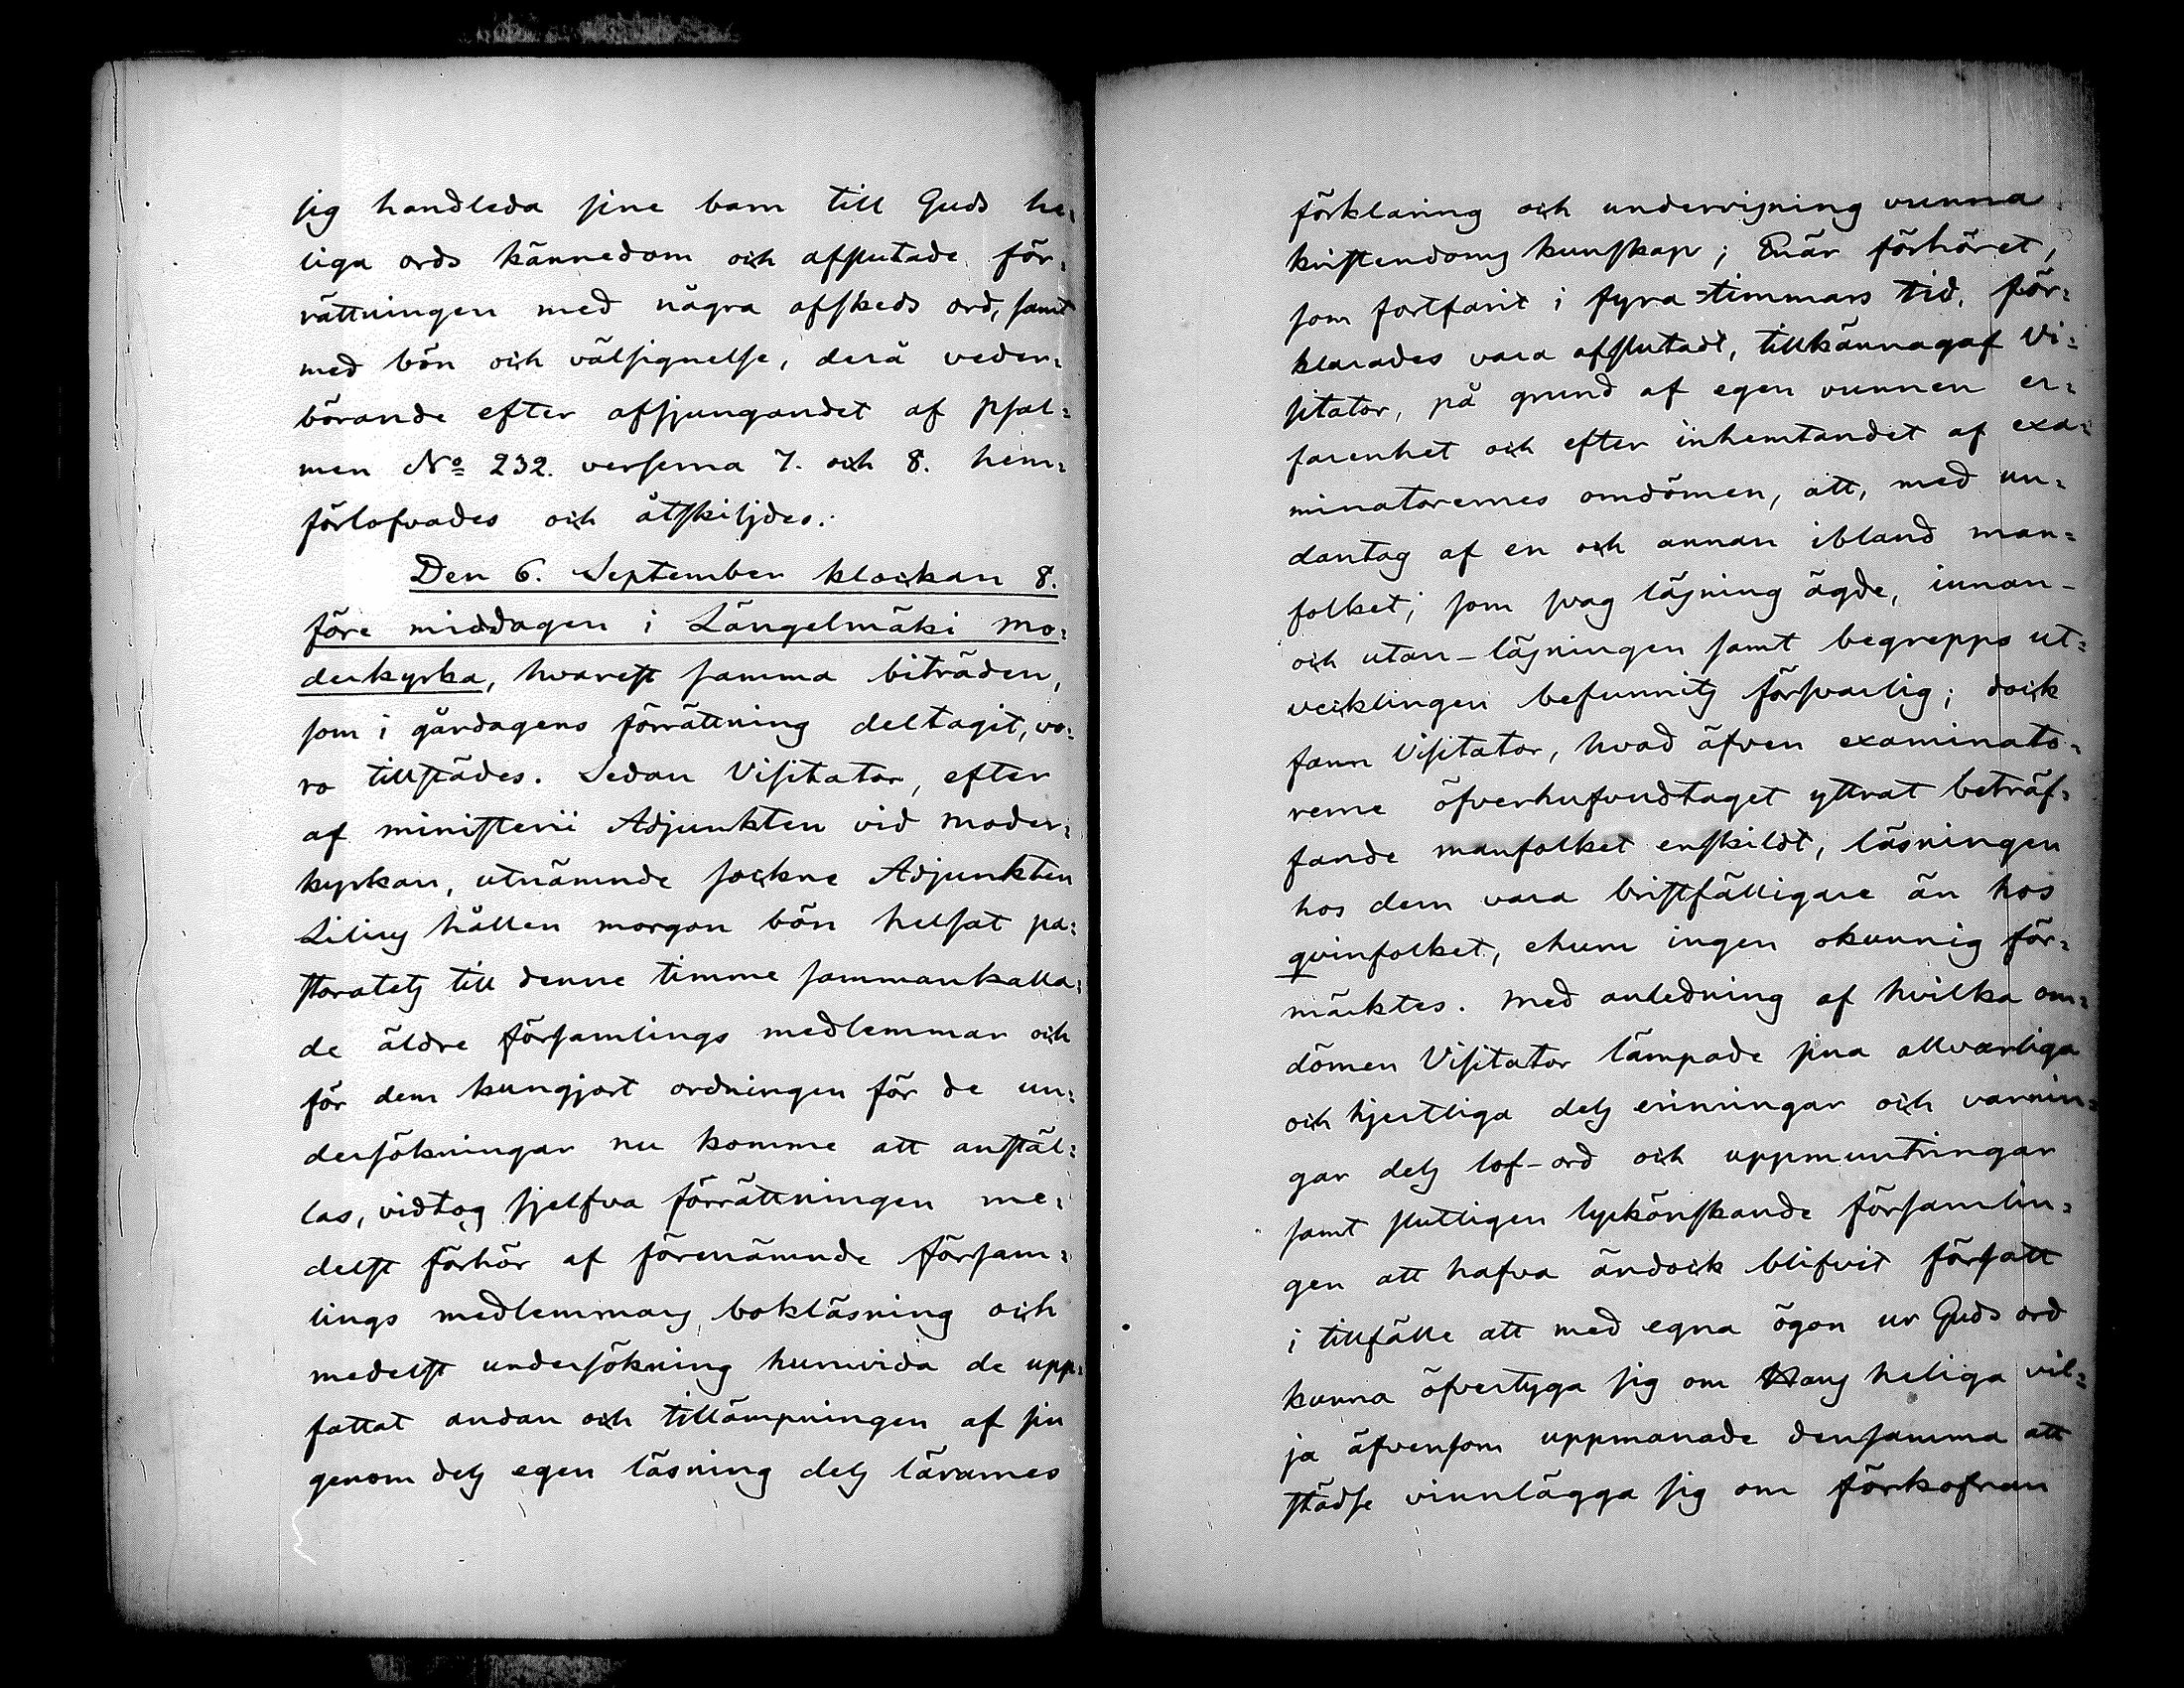 sig handleda sine barn till Guds he=
liga ords kännedom och afslutade för=
rättningen med några afskeds ord, samt
med bön och välsignelse, derå veder=
börande efter afsjungandet af psal=
men No 232. verserna 7. och 8. hem=
förlofvades och åtskiljdes.
Den 6. September klockan 8.
före middagen i Längelmäki mo=
derkyrka, hvarest samma biträden,
som i gårdagens förrättning deltagit, vo=
ro tillstädes. Sedan Visitator, efter
af ministerii Adjunkten vid moder=
kyrkan, utnämnde sockne Adjunkten
Lilius hållen morgon bön helsat pa=
storatets till denne timme sammankalla=
de äldre församlings medlemmar och
för dem kungjort ordningen för de un=
dersökningar nu komme att anstäl=
las, vidtog sjelfva förrättningen me=
delst förhör af förenämnde försam=
lings medlemmars bokläsning och
medelst undersökning huruvida de upp=
fattat andan och tillämpningen af sin
genom dels egen läsning dels lärarnes
förklaring och undervisning vunna
kristendoms kunskap; Enär förhöret,
som fortfarit i fyra-timmars tid, för=
klarades vara afslutadt, tillkännagaf Vi=
sitator, på grund af egen vunnen er=
farenhet och efter inhemtandet af exa=
minatorernes omdömen, att, med un=
dantag af en och annan ibland man=
folket; som svag läsning ägde, innan-
och utan-läsningen samt begrepps ut=
vecklingen befunnits försvarlig; dock
fann Visitator, hvad äfven examinato=
rerne öfverhufvudtaget yttrat beträf=
fande manfolket enskildt, läsningen
hos dem vara bristfälligare än hos
qvinfolket, ehuru ingen okunnig för=
märktes. Med anledning af hvilka om=
dömen Visitator lämpade sina allvarliga
och hjertliga dels erinringar och varnin=
gar dels lof-ord och uppmuntringar
samt slutligen lyckönskande församlin=
gen att hafva ändock blifvit försatt
i tillfälle att med egna ögon ur Guds ord
kunna öfvertyga sig om Hans heliga vil=
ja äfvensom uppmanade densamma att
städse vinnlägga sig om förkofran